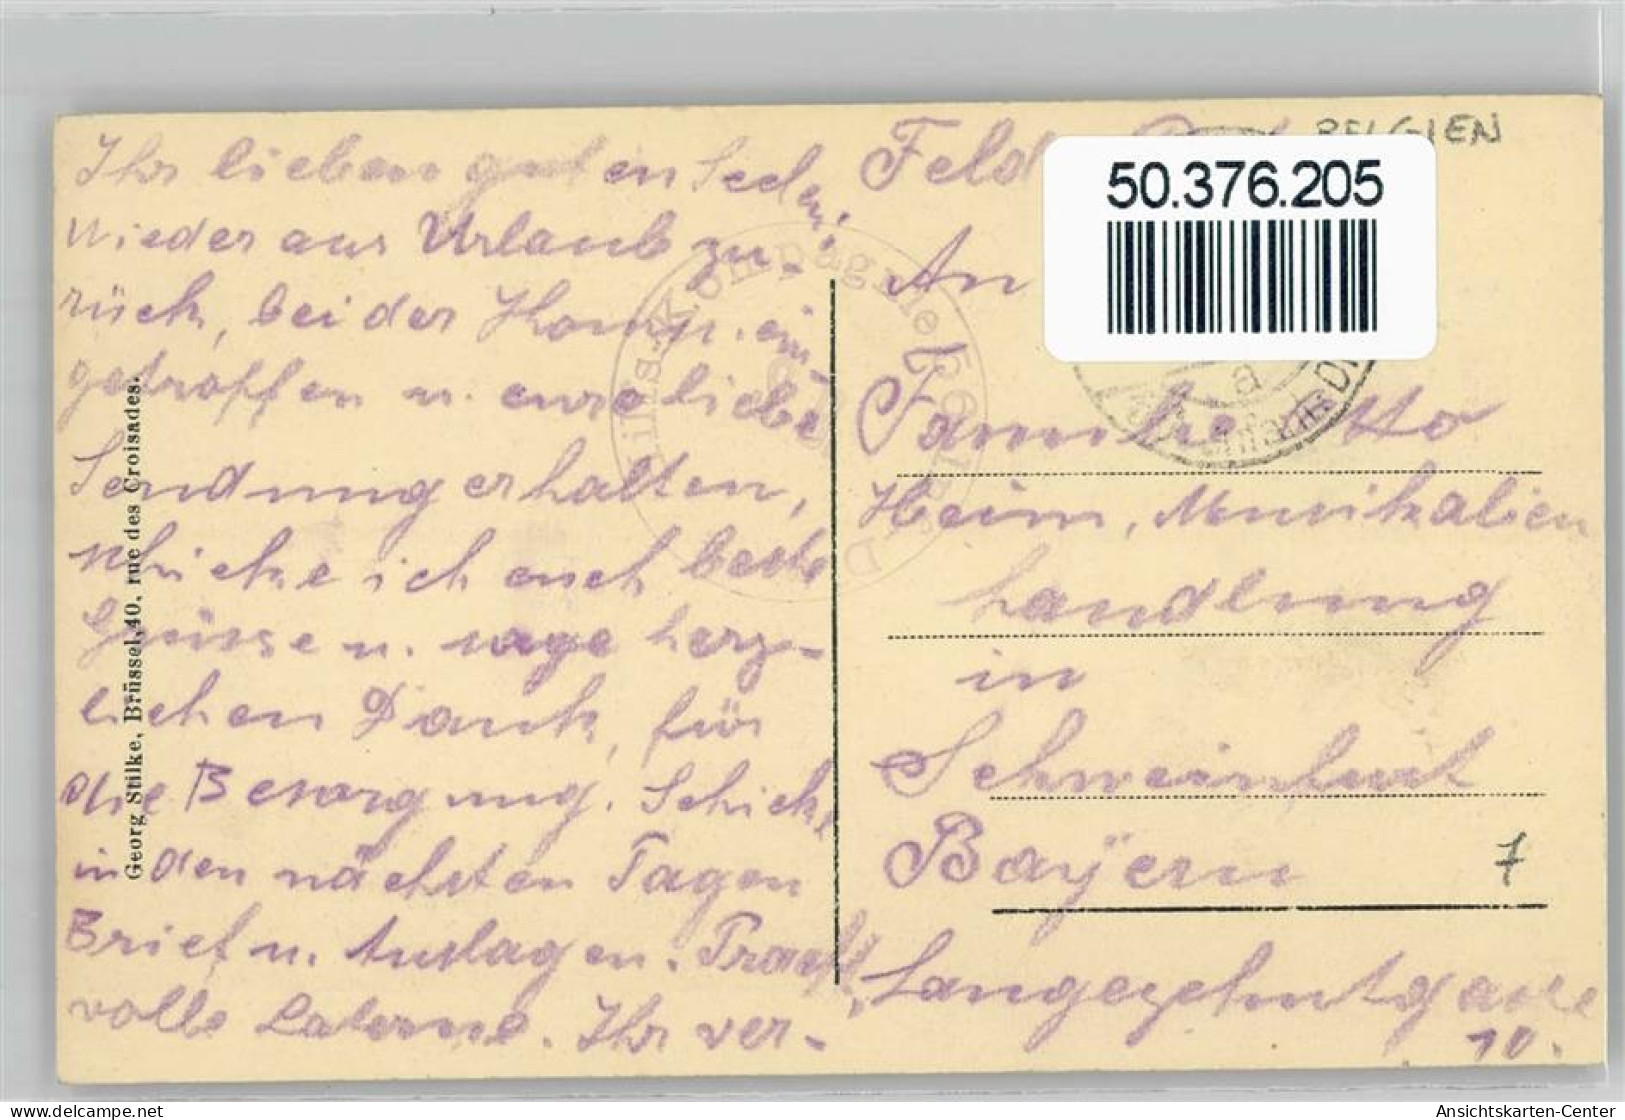 Ihr lieben guten Seelen!
Wieder aus Urlaub zu-
rück, bei der Komp. ein-
getroffen u. eure liebe
Sendung erhalten,
schicke ich euch beste
Grüsse u. sage herz-
lichen Dank, für
die Besorgung. Schicke
in den nächsten Tagen
Brief u. Auslagen. Pracht-
volle Laterne. Ihr ver-
Georg Stilke, Brüssel, 40, rue des Croisades.
Feld
BELGIEN
50.376.205
An
Familie Otto
Heim, Musikalien
handlung
in
Schweinfurt
Bayern
7
Langezehntgasse
10.
a
Ansichtskarten-Center